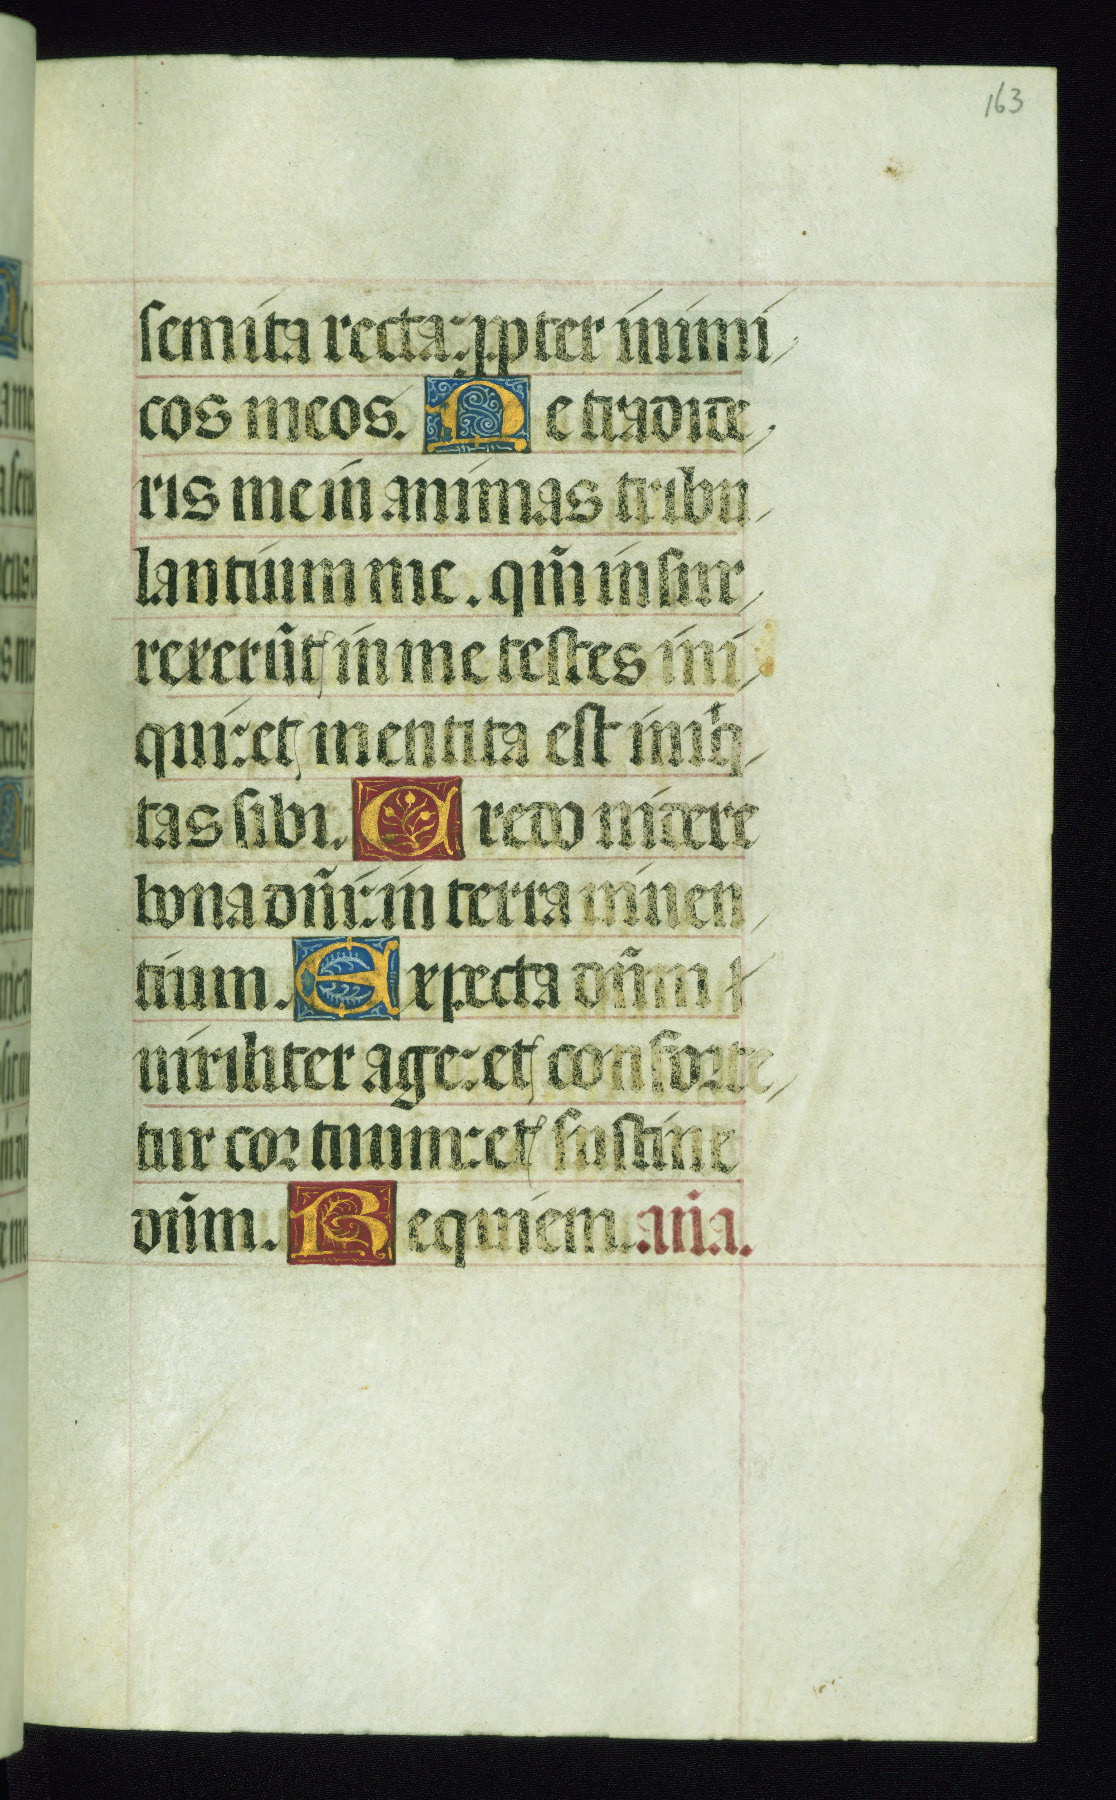 163
semita recta: ꝓpter inimi
cos meos. Ne tradide
ris me in animas tribu
lantium me. qm̄ insur
rexerūt in me testes ini
qui: et mentita est iniq̇
tas sibi. Credo uidere
bona dn̄i: in terra uiuen
tium. Expecta dn̄m
uiriliter age: et conforte
tur cor tuum: et sustine
dn̄m. Requiem. an̄a.